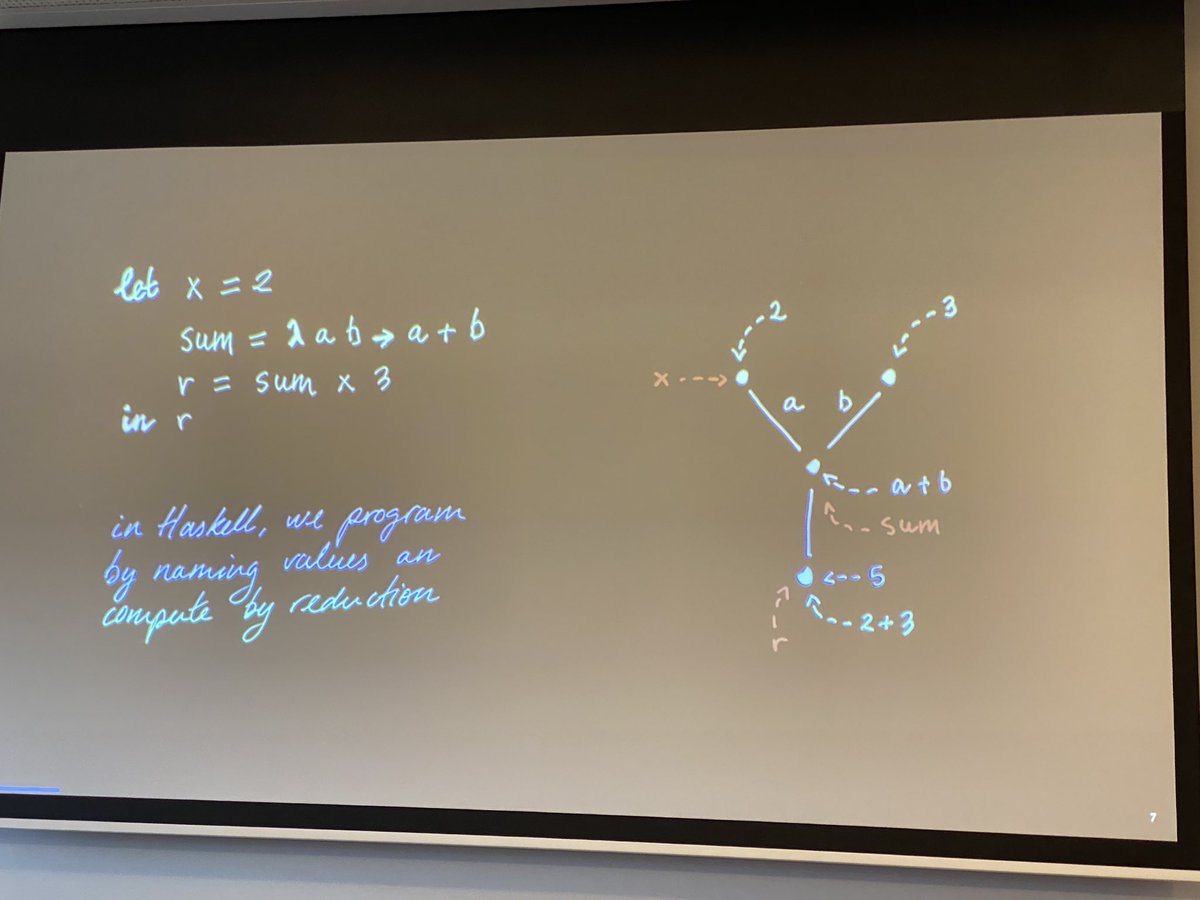 let x = 2
sum = λ a b → a + b
r = sum x 3
in r
in Haskell, we program
by naming values an
compute by reduction
2
3
x
a
b
a + b
sum
5
2 + 3
r
7